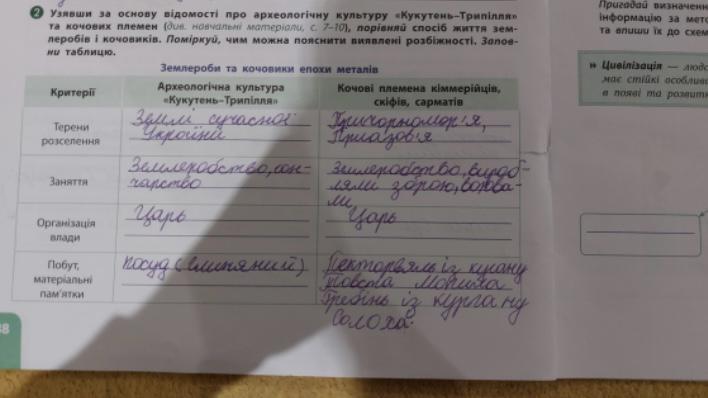 2 Узявши за основу відомості про археологічну культуру «Кукутень–Трипілля»
та кочових племен (див. навчальні матеріали, с. 7–10), порівняй спосіб життя зем-
леробів і кочовиків. Поміркуй, чим можна пояснити виявлені розбіжності. Запов-
ни таблицю.
Землероби та кочовики епохи металів
Критерії
Археологічна культура
«Кукутень–Трипілля»
Кочові племена кіммерійців,
скіфів, сарматів
Терени
розселення
Землі сучасної
України
Причорномор'я,
Приазов'я
Заняття
Землеробство, гон-
чарство
Землеробство, вироб-
ляли зброю, воюва-
ли
Організація
влади
Царь
Царь
Побут,
матеріальні
пам'ятки
посуд (глиняний)
Пектораль із
Товста Могила
Гребінь із кургану
Солоха.
38
Пригадай визначенн
інформацію за мето
та впиши їх до схем
» Цивілізація — людс
має стійкі особливі
в появі та розвитк